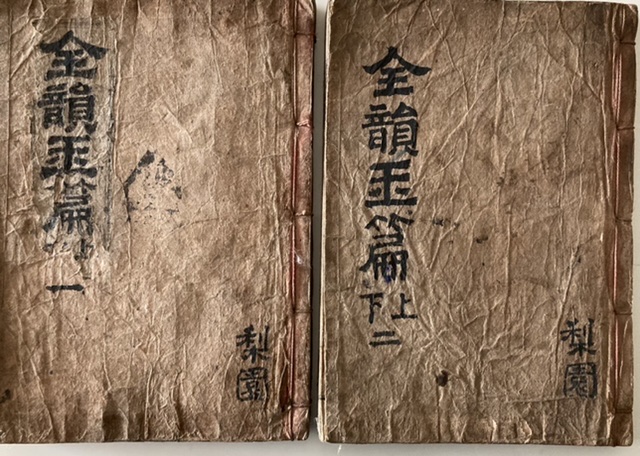 全韻玉篇
一
梨園
全韻玉篇
上下
二
梨園